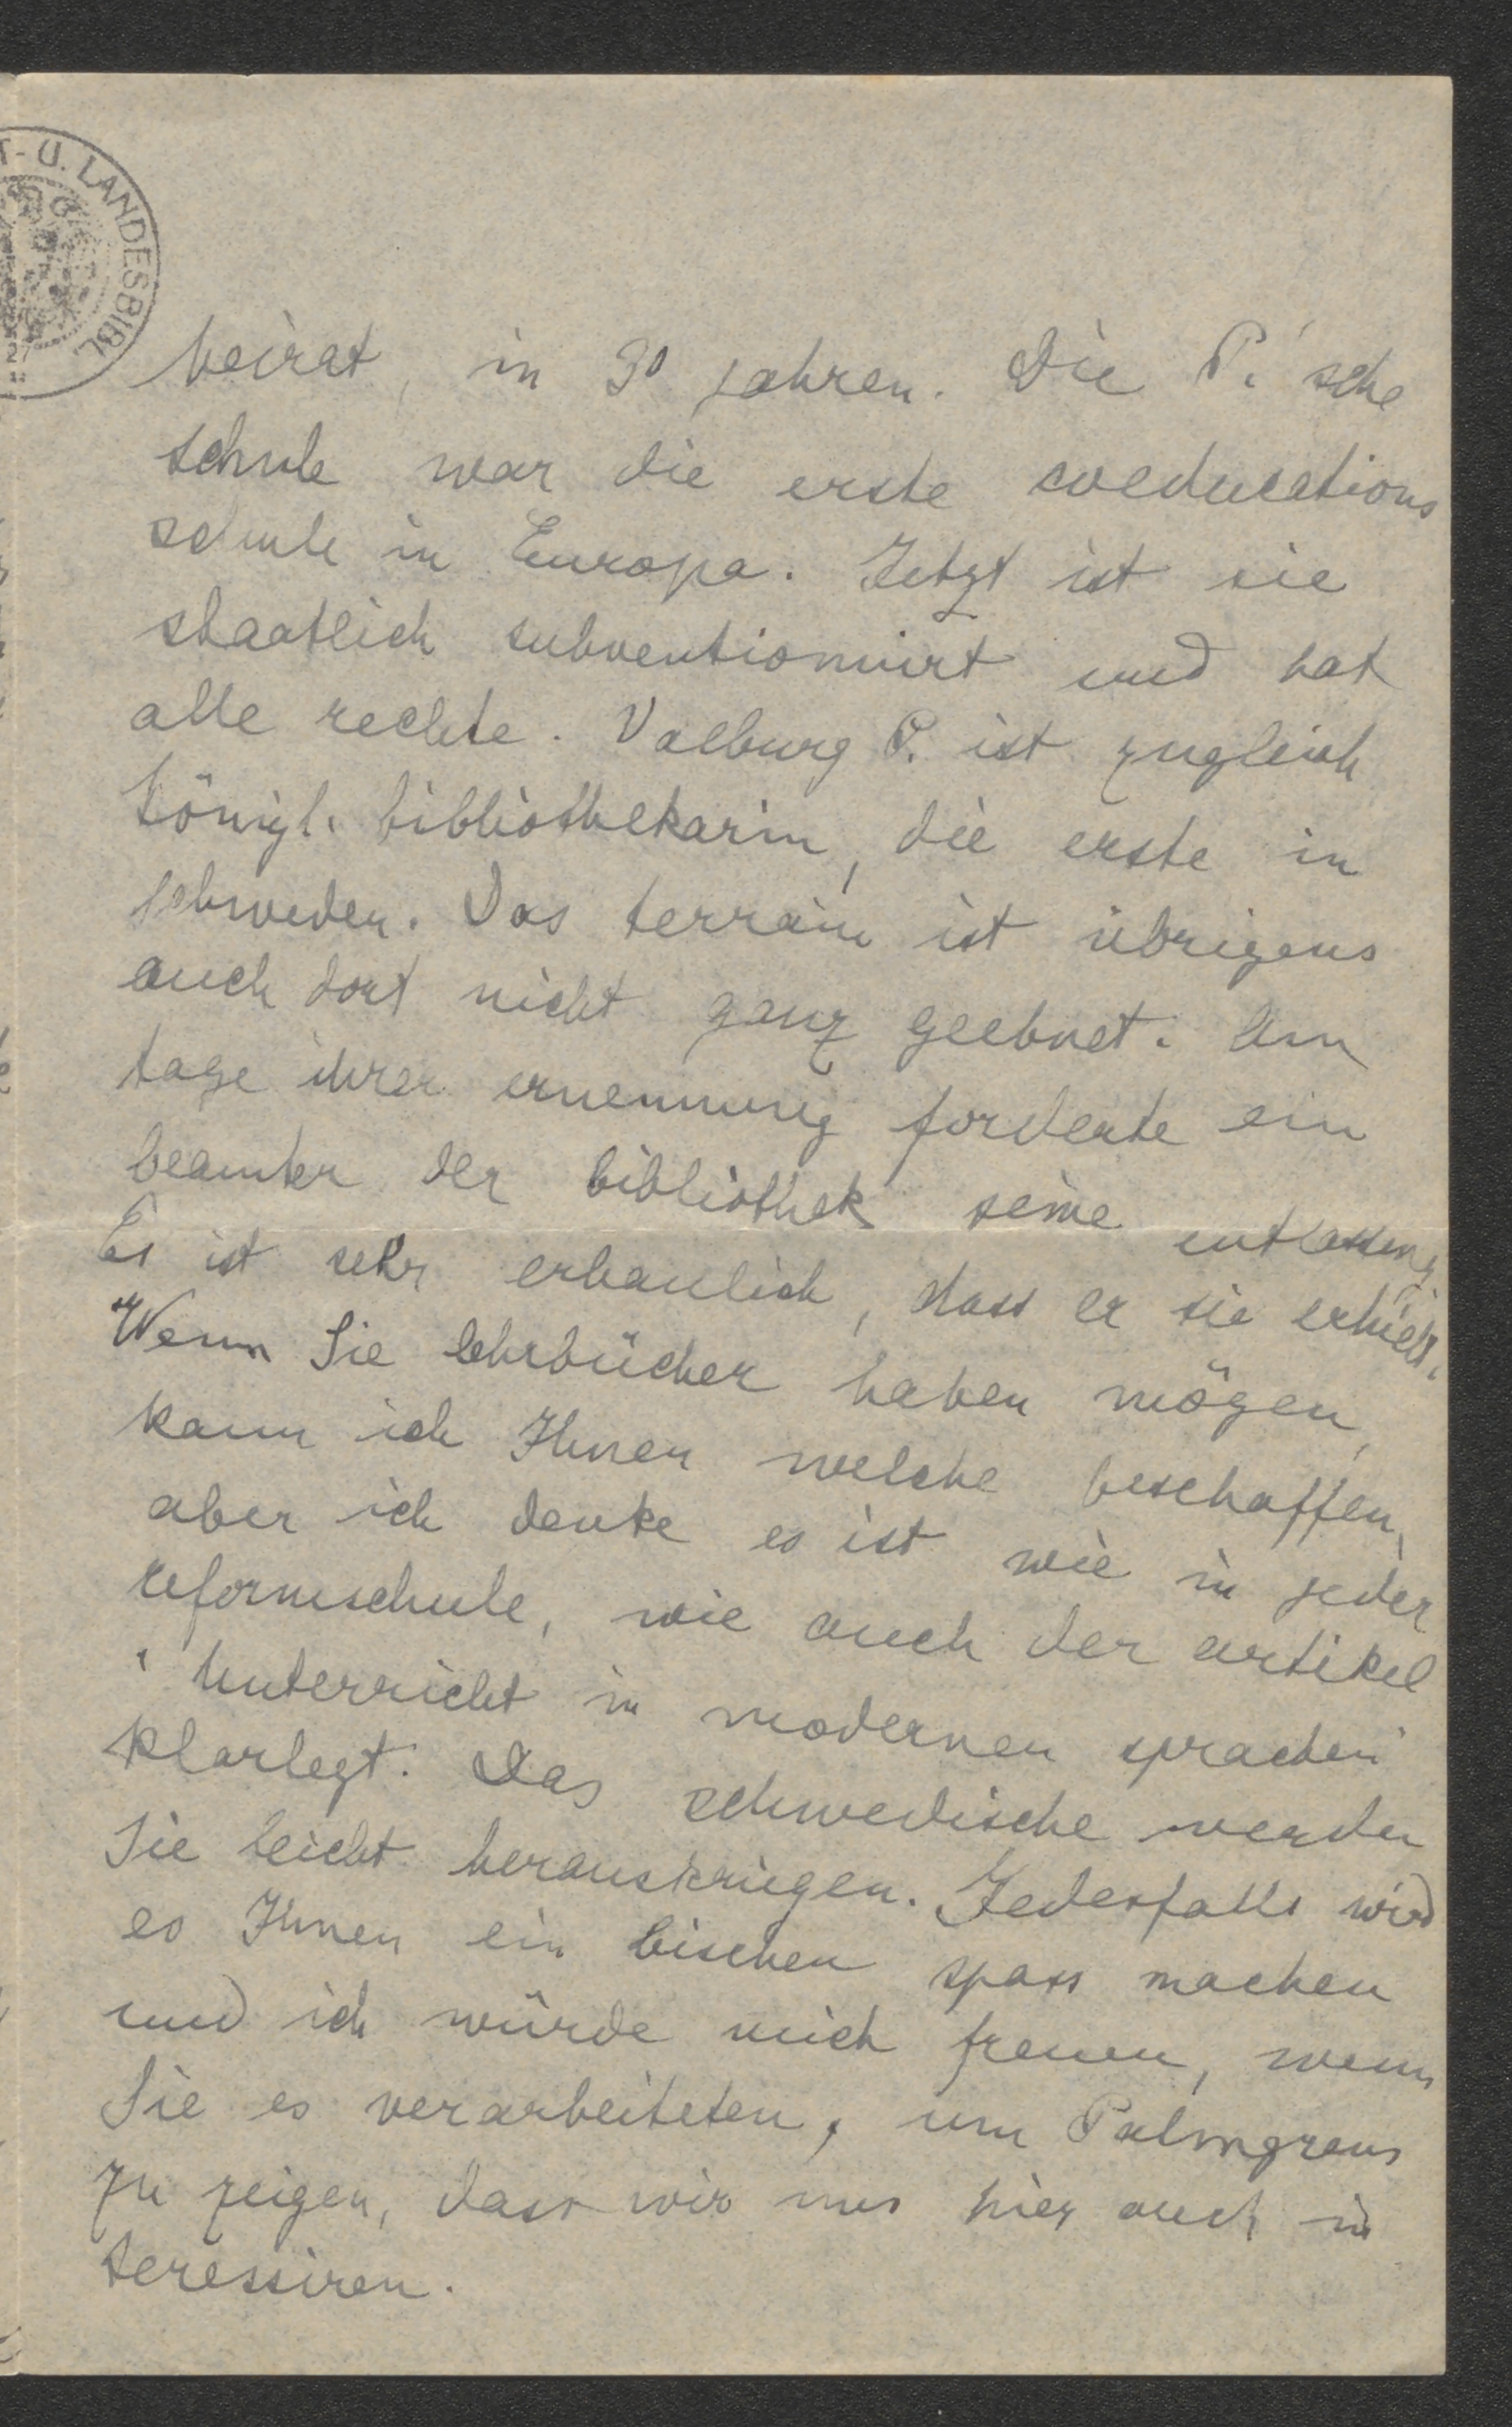 T- U. LANDESBIBL
heirat, in 30 jahren. Die P.'sche
schule war die erste coeducations
schule in Europa. Jetzt ist sie
staatlich subventionnirt und hat
alle rechte. Valburg P. ist zugleich
königl. bibliothekarin, die erste in
schweden. Das terrain ist übrigens
auch dort nicht ganz geebnet. Am
tage ihrer ernennung forderte ein
beamter der bibliothek seine entlassung.
Es ist sehr erbaulich, dass er sie erhielt.
Wenn Sie lehrbücher haben mögen,
kann ich Ihnen welche beschaffen,
aber ich denke es ist wie in jeder
reformschule, wie auch der artikel
"Unterricht in modernen sprachen"
klarlegt. Das schwedische werden
Sie leicht herauskriegen. Jedesfalls wird
es Ihnen ein bischen spass machen
und ich würde mich freuen, wenn
Sie es verarbeiteten, um Palmgrens
zu zeigen, dass wir uns hier auch in
teressiren.